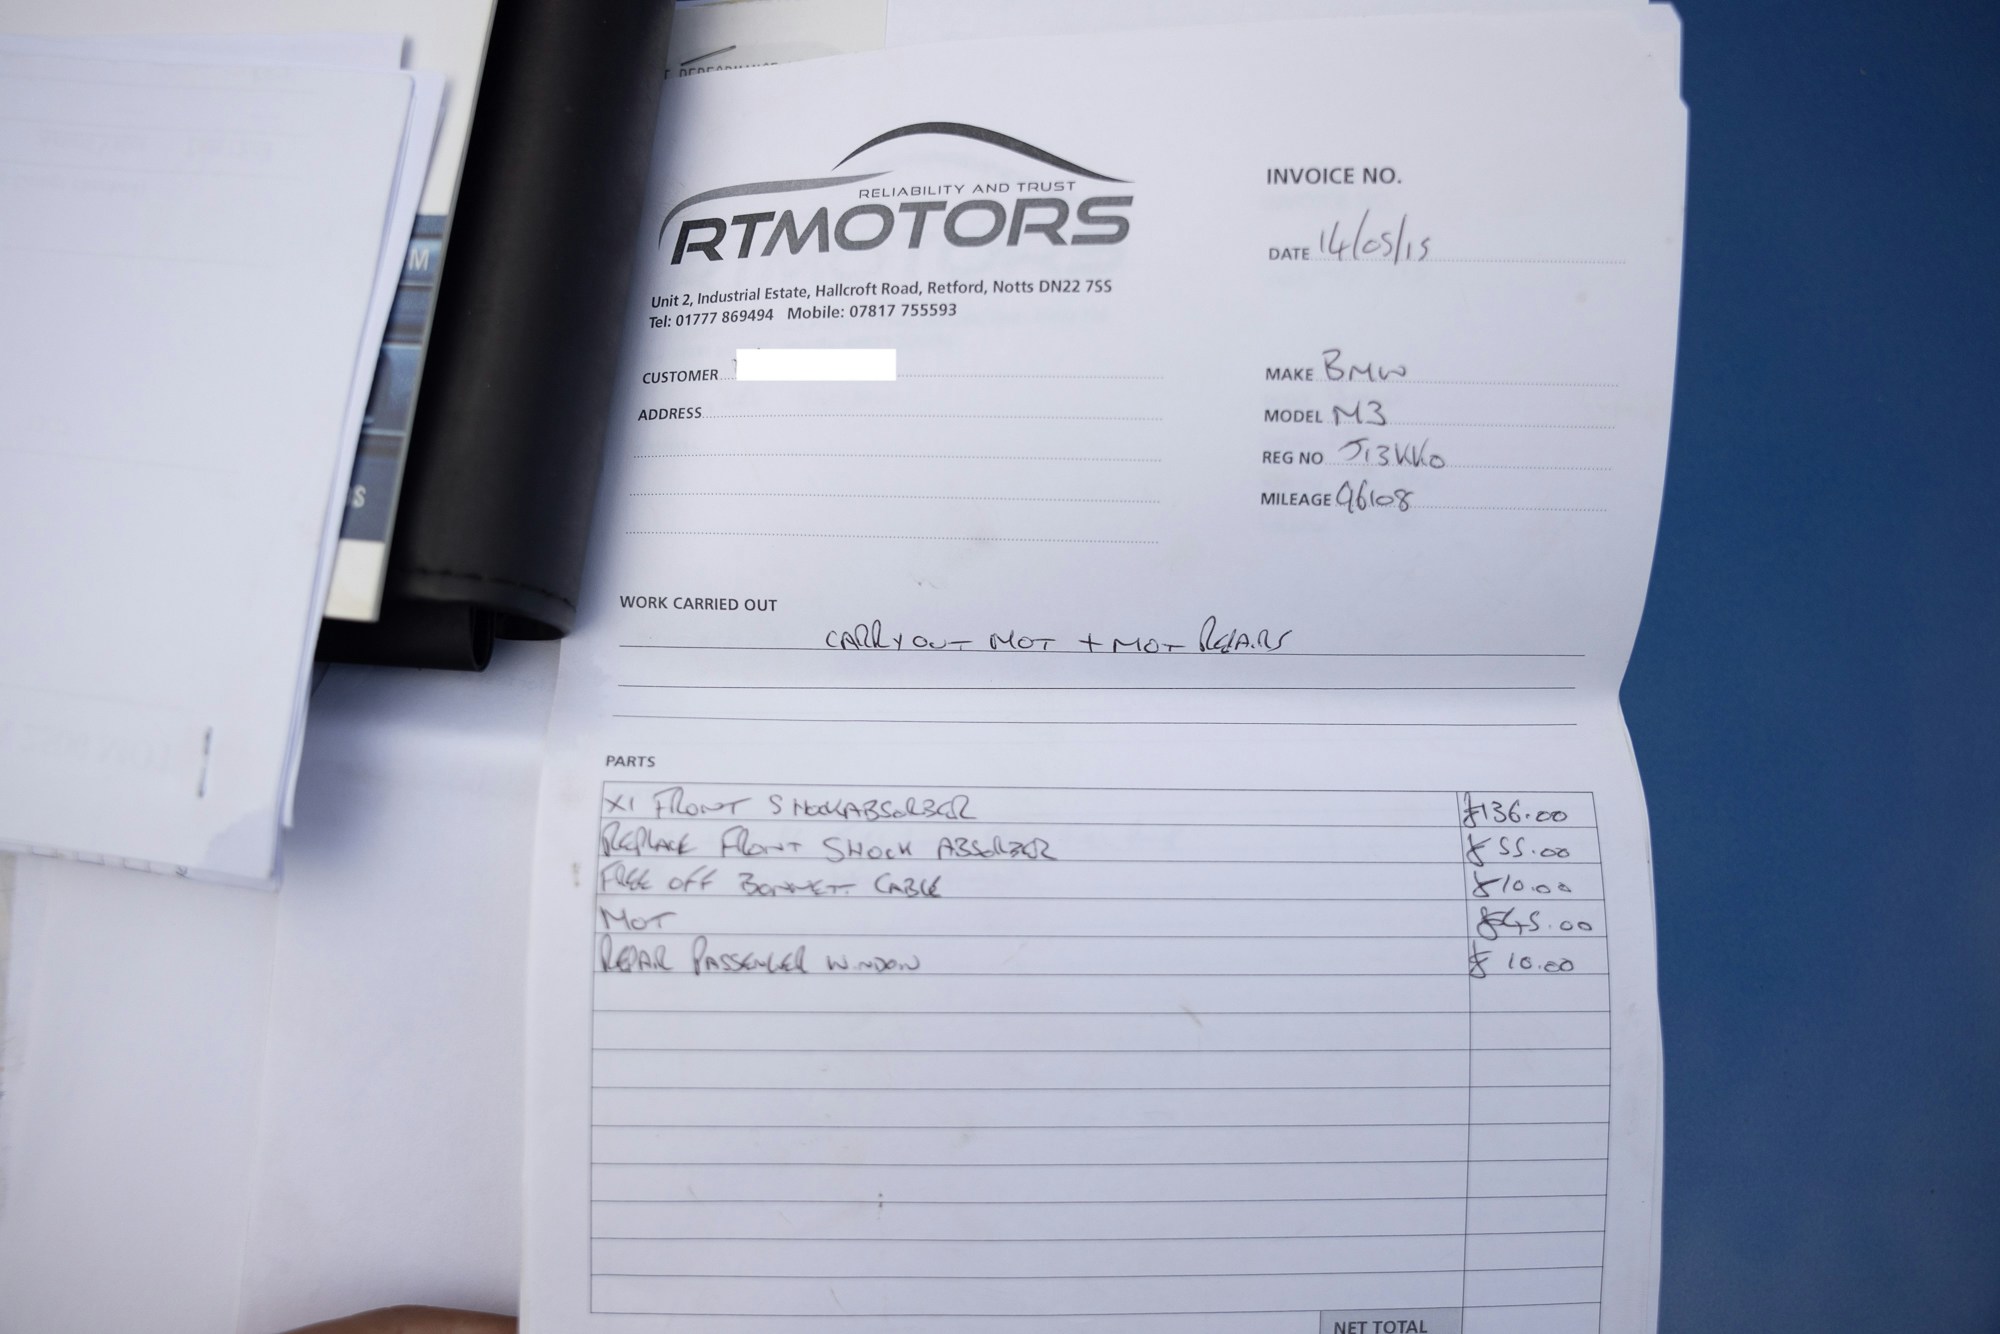 RELIABILITY AND TRUST
RTMOTORS
Unit 2, Industrial Estate, Hallcroft Road, Retford, Notts DN22 7SS
Tel: 01777 869494 Mobile: 07817 755593
INVOICE NO.
DATE 14/05/15
CUSTOMER
ADDRESS
MAKE BMW
MODEL M3
REG NO J13KKO
MILEAGE 96108
WORK CARRIED OUT
CARRY OUT MOT + MOT REPAIRS
PARTS
X1 FRONT SHOCKABSORBER £136.00
REPLACE FRONT SHOCK ABSORBER £55.00
FREE OFF BONNETT CABLE £10.00
MOT £45.00
REPAIR PASSENGER WINDOW £10.00
NET TOTAL
M
S